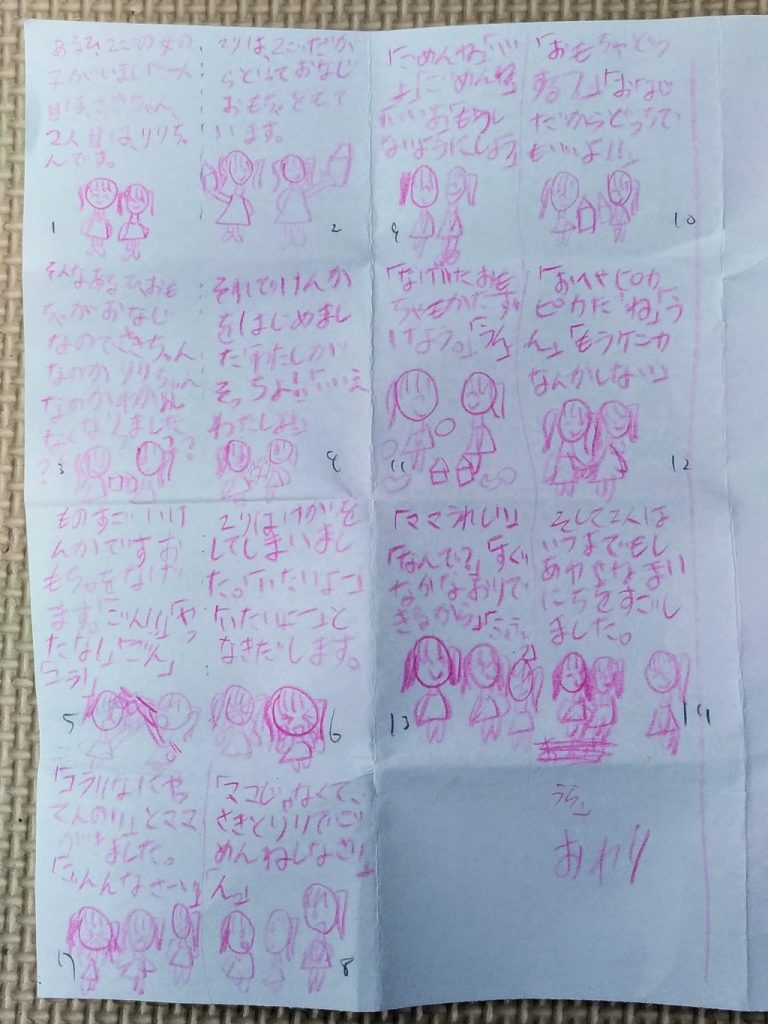 あるひ、2ごの女の
子がいました一人
目は、さきちゃん、
2人目は、りりちゃ
んです。
1
2りは、2ごだか
らといっておなじ
おもちゃをもて
います。
2
そんなあるひ、おも
ちゃがおなじ
なのでさきちゃん
なのかりりちゃん
なのかわからん
なくなりました
?
3
それでりけんか
をはじめまし
た「わたしが
そっちよ!!」「いいえ
わたしよ!」
4
ものすごいいけ
んかですお
もちゃをなげ
ます。「ごん!!」「やっ
たな!」「ごん」
「コラ!」
5
2りはけがを
してしまいまし
た。「いたいよー」
「いたいよー」と
なきだします。
6
「コラ!!なにやっ
てんのり!」とママ
がきました。
「ごんんなさーい」
7
「ママじゃなくて、
さきとりりでご
めんねしなさい」
「ん」
8
「ごめんね」「いい
よ」「ごめんね」
ないようにしよう」
9
「おもちゃどう
する?」「おなじ
だからどっちで
もいいよ!!」
10
「なげたおも
ちゃもかたず
けよう。」「うん」
11
「おへやピカ
ピカだ「ね」う
ん」「もうケンカ
なんかしない」
12
「ママうれしい」
「なんで?」「すぐ
なかなおりで
きるから」
13
そして2人は
いつまでもし
あわせなまい
にちをすごし
ました。
14
おわり